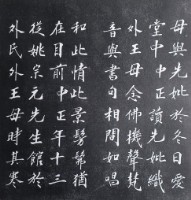 母與先妣於冬日愛
堂中中正讀先妣織
外王母念佛機聲梵
音與書句相間如唱
和此情此景髣髴猶
在目前中正年十三
從姚宗元先生館於
外氏外王母時其寒